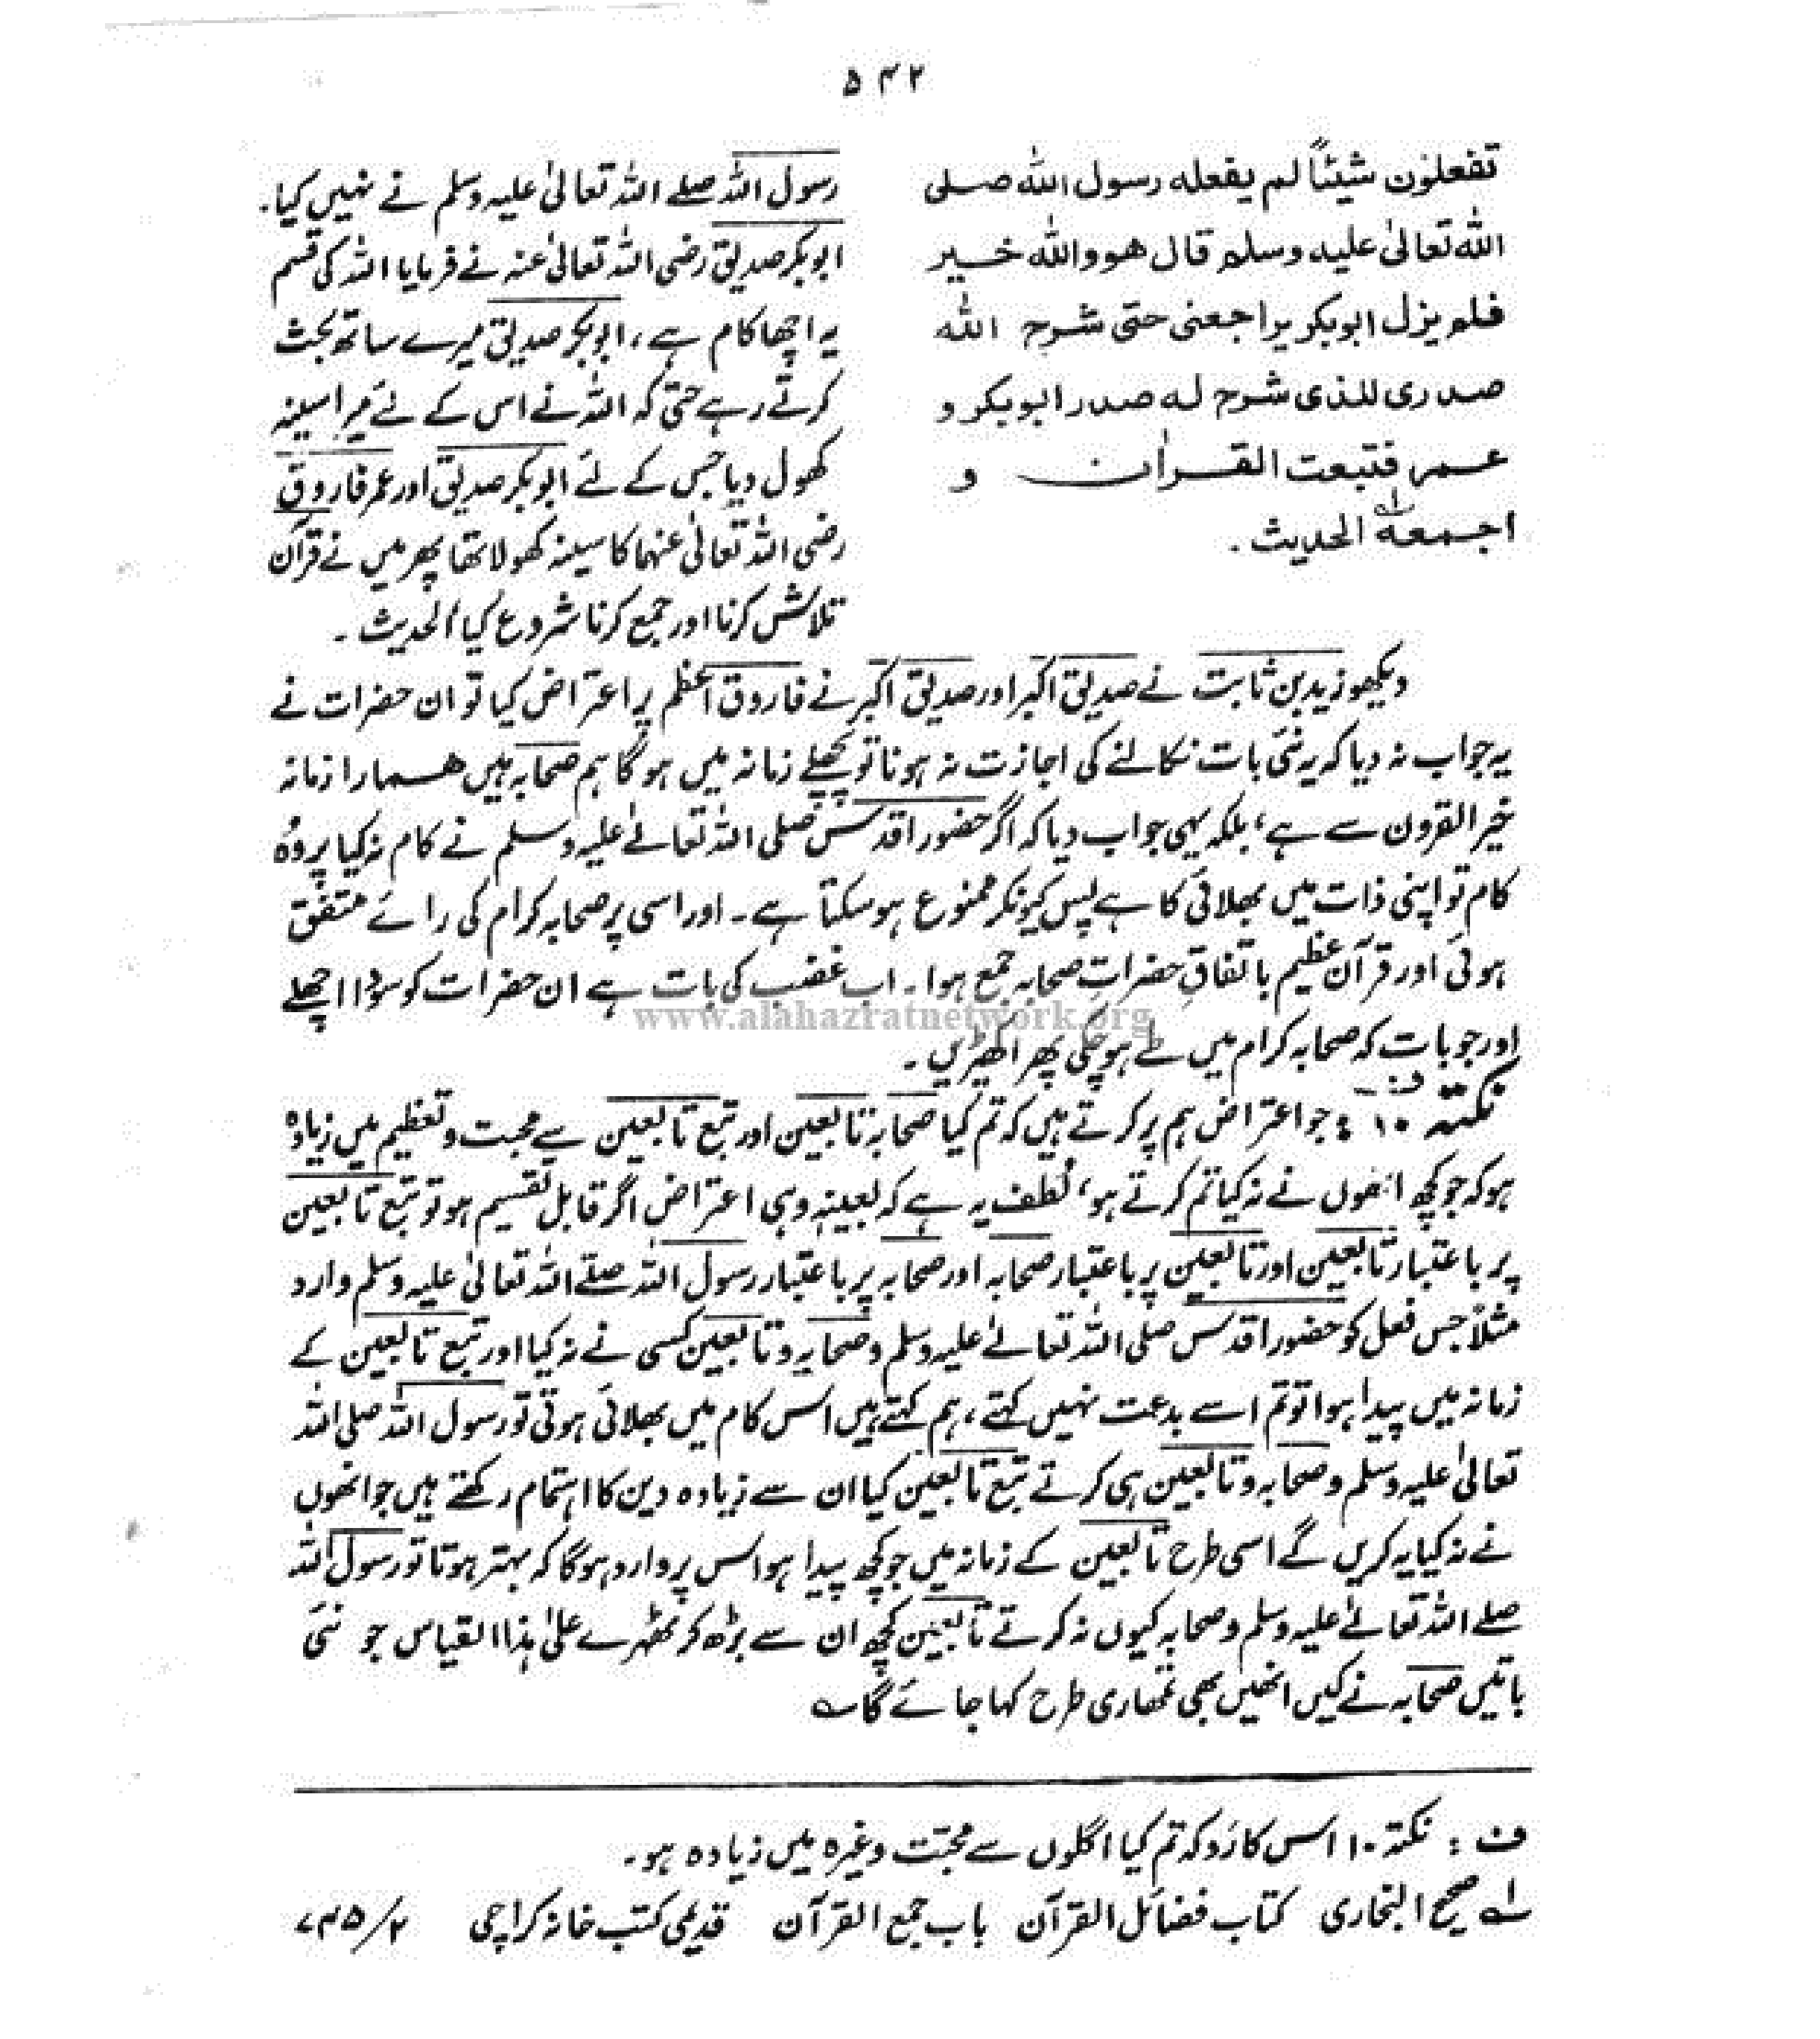 ۵۴۲
تفعلون شیئاً لم یفعله رسول الله صلی
الله تعالٰی علیه وسلم قال هو والله خیر
فلم یزل ابوبکر یراجعنی حتی شرح الله
صدری للذی شرح له صدر ابوبکر و
عمر فتبعت القراٰن و
اجمعه الحدیث ۔
رسول اللہ صلے اللہ تعالٰی علیہ وسلم نے نہیں کیا۔
ابوبکر صدیق رضی اللہ تعالٰی عنہ نے فرمایا اللہ کی قسم
یہ اچھا کام ہے، ابوبکر صدیق میرے ساتھ بحث
کرتے رہے حتی کہ اللہ نے اس کے لئے میرا سینہ
کھول دیا جس کے لئے ابوبکر صدیق اور عمر فاروق
رضی اللہ تعالٰی عنہما کا سینہ کھولا تھا پھر میں نے قرآن
تلاش کرنا اور جمع کرنا شروع کیا الحدیث ۔
دیکھو زید بن ثابت نے صدیق اکبر اور صدیق اکبر نے فاروق اعظم پر اعتراض کیا تو ان حضرات نے
یہ جواب نہ دیا کہ یہ نئی بات نکالنے کی اجازت نہ ہونا تو پچھلے زمانہ میں ہوگا ہم صحابہ ہیں ہمارا زمانہ
خیر القرون سے ہے، بلکہ یہی جواب دیا کہ اگر حضور اقدس صلی اللہ تعالےٰ علیہ وسلم نے کام نہ کیا پر وہ
کام تو اپنی ذات میں بھلائی کا ہے پس کیونکر ممنوع ہوسکتا ہے۔ اور اسی پر صحابہ کرام کی رائے متفق
ہوئی اور قرآن عظیم باتفاقِ حضراتِ صحابہ جمع ہوا۔ اب غضب کی بات ہے ان حضرات کو سودا اچھلے
اور جو بات کہ صحابہ کرام میں طے ہوچکی پھر اکھیڑیں ۔
www.alahazratnetwork.org
نکتہ ۱۰ ف: جو اعتراض ہم پر کرتے ہیں کہ تم کیا صحابہ تابعین اور تبع تابعین سے محبت و تعظیم میں زیادہ
ہو کہ جو کچھ انھوں نے نہ کیا تم کرتے ہو، لُطف یہ ہے کہ بعینہٖ وہی اعتراض اگر قابل تقسیم ہو تو تبع تابعین
پر باعتبار تابعین اور تابعین پر باعتبار صحابہ اور صحابہ پر باعتبار رسول اللہ صلے اللہ تعالٰی علیہ وسلم وارد
مثلاً جس فعل کو حضور اقدس صلی اللہ تعالےٰ علیہ وسلم و صحابہ و تابعین کسی نے نہ کیا اور تبع تابعین کے
زمانہ میں پیدا ہوا تو تم اسے بدعت نہیں کہتے، ہم کہتے ہیں اس کام میں بھلائی ہوتی تو رسول اللہ صلی اللہ
تعالٰی علیہ وسلم و صحابہ و تابعین ہی کرتے تبع تابعین کیا ان سے زیادہ دین کا اہتمام رکھتے ہیں جو انھوں
نے نہ کیا یہ کریں گے اسی طرح تابعین کے زمانہ میں جو کچھ پیدا ہوا اس پر وارد ہوگا کہ بہتر ہوتا تو رسول اللہ
صلے اللہ تعالےٰ علیہ وسلم و صحابہ کیوں نہ کرتے تابعین کچھ ان سے بڑھ کر ٹھہرے علیٰ ہذا القیاس جو نئی
باتیں صحابہ نے کیں انھیں بھی تمھاری طرح کہا جائے گا ؎
ف : نکتہ ۱۰ اس کا رَد کہ تم کیا اگلوں سے محبّت وغیرہ میں زیادہ ہو۔
لہ صحیح البخاری کتاب فضائل القرآن باب جمع القرآن قدیمی کتب خانہ کراچی ۲/۷۴۵